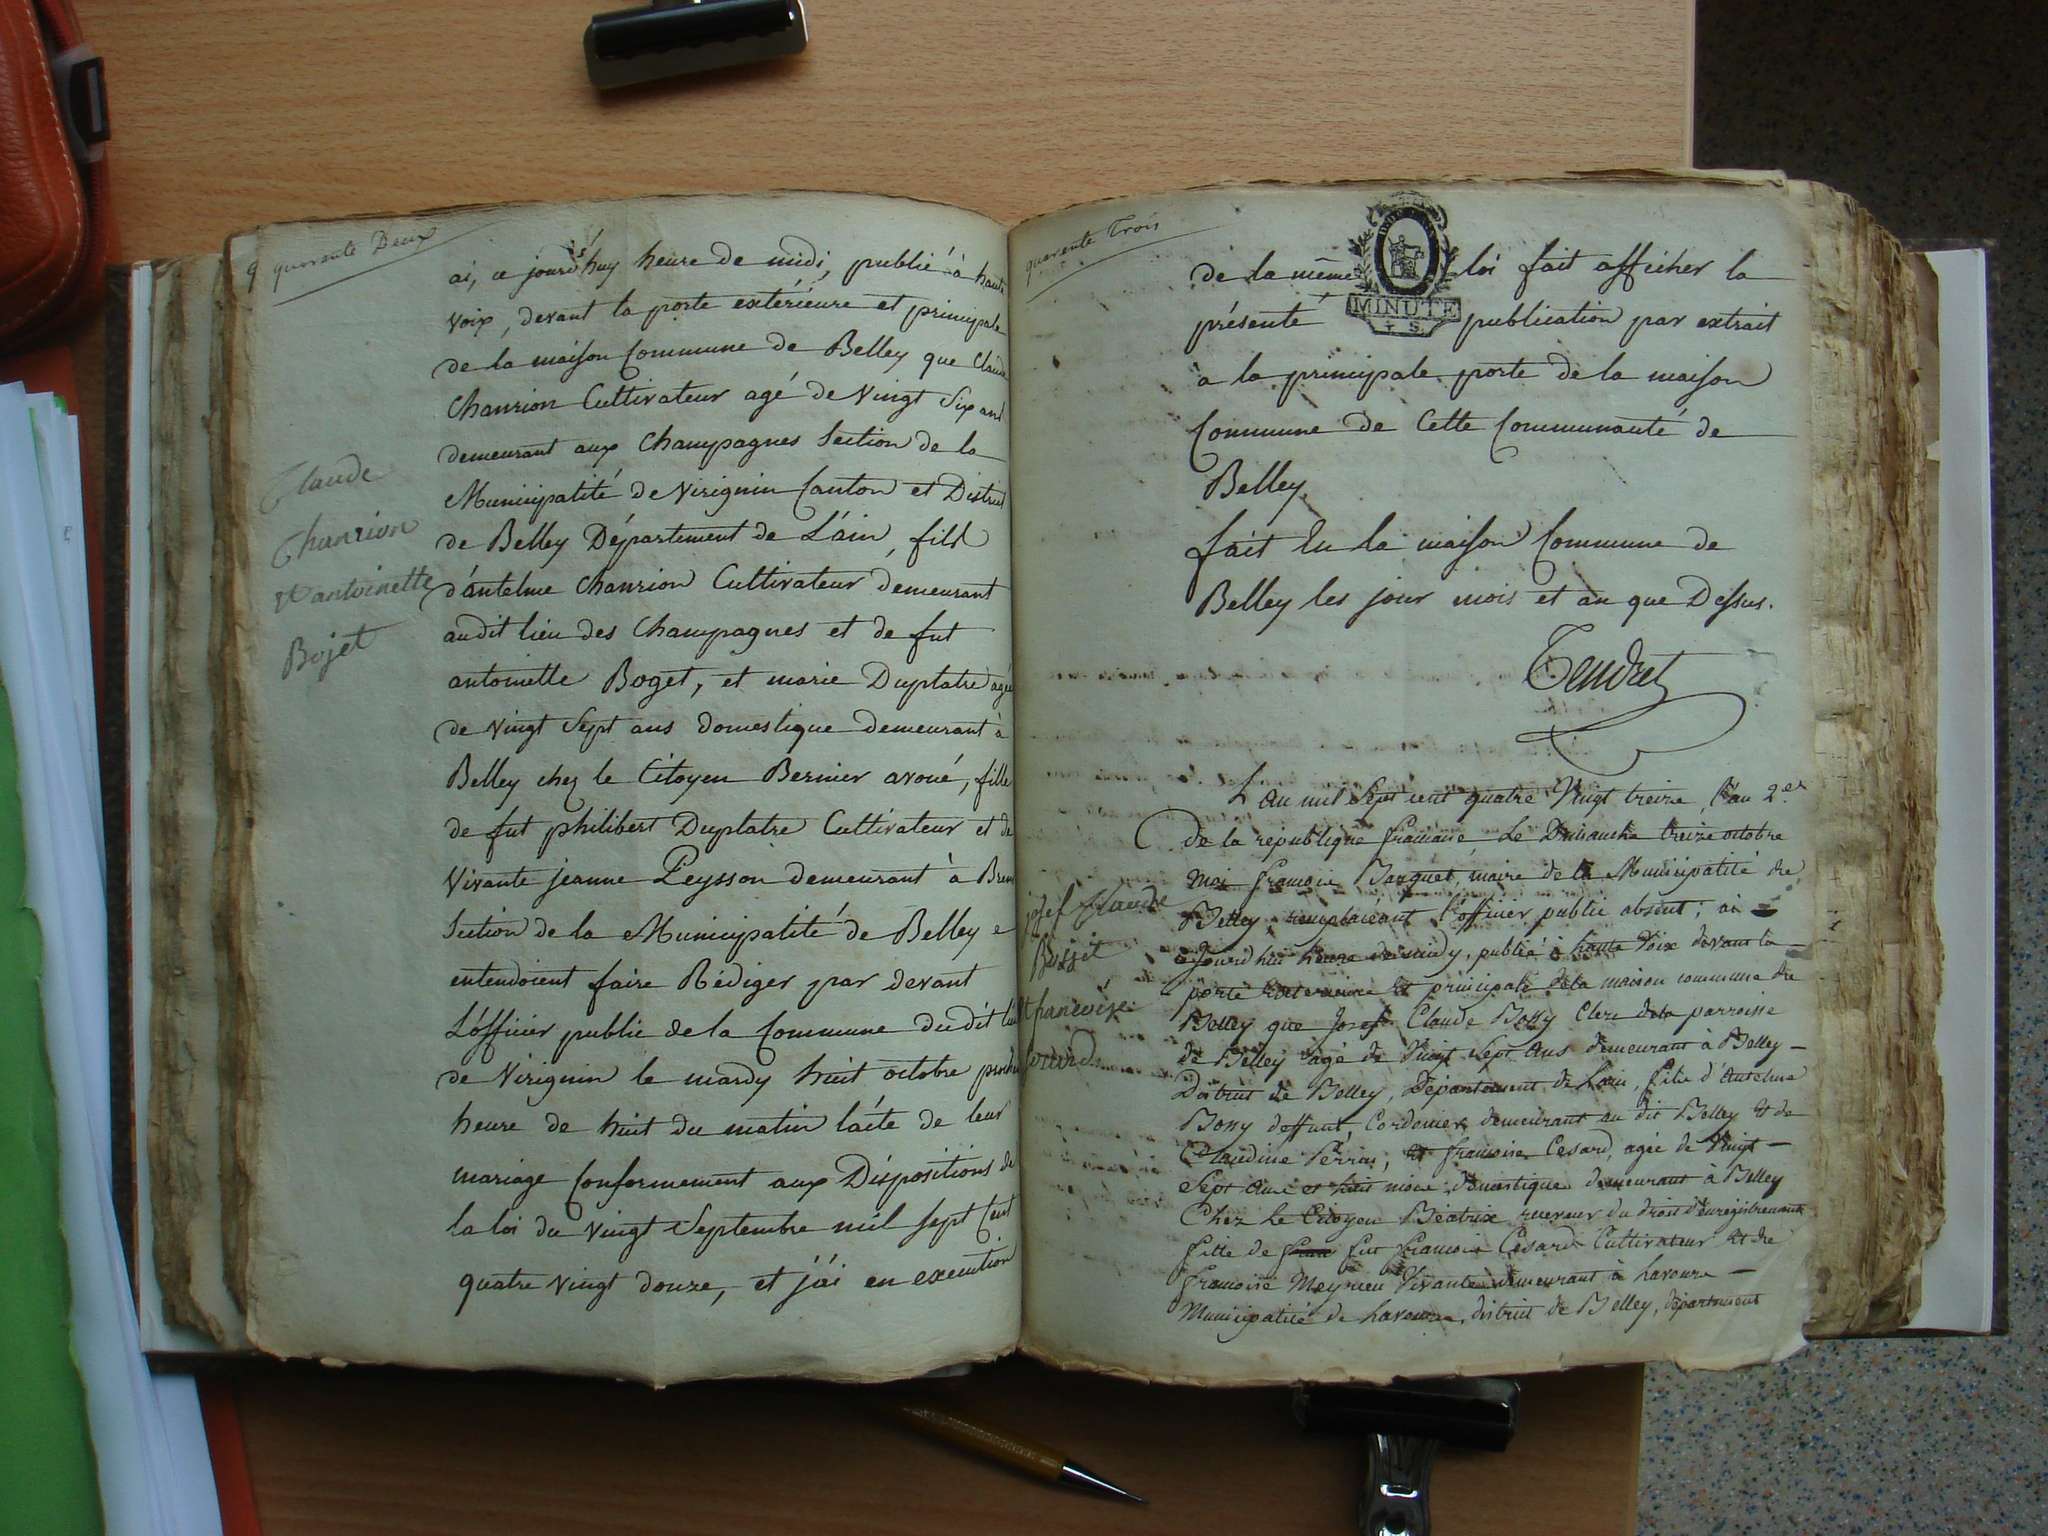 9 quarente Deux
ai, ce jourd'huy heure de midi, publié à haute
voix, devant la porte extérieure et principale
de la maison Commune de Belley que Claude
Chanrion Cultivateur agé de Vingt Six ans
demeurant aux Champagnes Section de la
Municipalité de Virignin Canton et District
de Belley Département de L'ain, fils
d'antelme Chanrion Cultivateur demeurant
audit lieu des Champagnes et de fut
antoinette Boget, et marie Duplatre agée
de Vingt Sept ans domestique demeurant à
Belley chez le Citoyen Bernier avoué, fille
de fut philibert Duplatre Cultivateur et de
Vivante jeanne Peysson demeurant à Bren
Section de la Municipalité de Belley
entendoient faire Rédiger par devant
L'officier public de la Commune dudit lieu
de Virignin le mardy huit octobre prochain
heure de huit du matin l'acte de leur
mariage Conformement aux Dispositions de
la loi du Vingt Septembre mil sept Cent
quatre Vingt douze, et j'ai en execution
Claude
Chanrion
et antoinette
Bojet
quarente Trois
de la même loi fait afficher la
présente publication par extrait
a la principale porte de la maison
Commune de Cette Communauté de
Belley.
fait En la maison Commune de
Belley les jour mois et an que Dessus.
Tendret
MINUTE
L'an mil Sept cent quatre Vingt treize, l'an 2.e
de la republique francaise Le Dimanche treize octobre
Moi francois Parquet, maire de la Municipalité de
Belley, remplacéant l'officier public absent; ai
ajourd'hui heure de midy, publié à haute Voix devant la
porte exterieure et principale de la maison commune de
Belley que Josef Claude Bossy Clerc de la parroisse
de Belley agé de Vingt Sept Ans demeurant à Belley
District de Belley, Département de Lain, fils d'Antelme
Bossy deffunt, Cordonier demeurant au dit Belley et de
Claudine Perrin, et francoise Cesard, agée de Vingt
Sept Ans et huit mois, domestique demeurant à Belley
Chez le Citoyen Béatrix receveur du droit d'enregistrement
fille de fut francois Cesard Cultivateur et de
francoise Meynieu Vivante demeurant à Lavoure
Municipalité de Lavoure, district de Belley, département
josef Claude
Bossjet
et francoise
Cesard